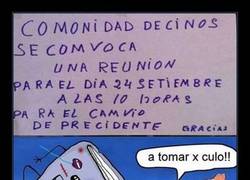 COMONIDAD DECINOS
SE COMVOCA
UNA REUNION
PARA EL DIA 24 SETIEMBRE
A LAS 10 HORAS
PA RA EL CAMVIO
DE PRECIDENTE
GRACIAS
a tomar x culo!!